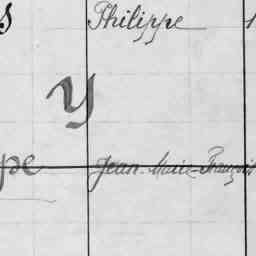 s Philippe 1
Y
pe Jean-Marie-François